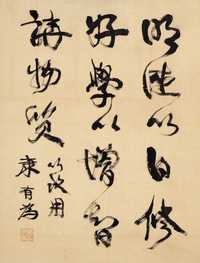 明德以自修
好學以增智
講物質
以致用
康有為